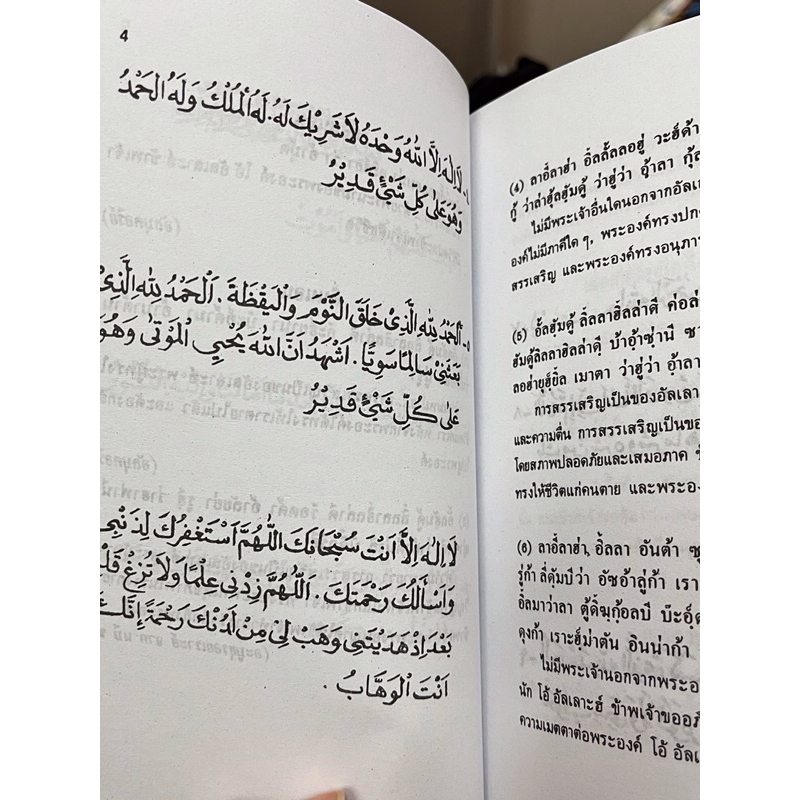 4
٤- لَا اِلٰهَ اِلَّا اللهُ وَحْدَهُ لَا شَرِيْكَ لَهُ. لَهُ الْمُلْكُ وَلَهُ الْحَمْدُ
وَهُوَ عَلٰى كُلِّ شَيْءٍ قَدِيْرٌ
٥- اَلْحَمْدُ لِلّٰهِ الَّذِيْ خَلَقَ النَّوْمَ وَالْيَقْظَةَ. اَلْحَمْدُ لِلّٰهِ الَّذِيْ
بَعَثَنِيْ سَالِمًا سَوِيًّا. اَشْهَدُ اَنَّ اللهَ يُحْيِي الْمَوْتٰى وَهُوَ
عَلٰى كُلِّ شَيْءٍ قَدِيْرٌ
لَا اِلٰهَ اِلَّا اَنْتَ سُبْحَانَكَ اللّٰهُمَّ اَسْتَغْفِرُكَ لِذَنْبِيْ
وَاَسْاَلُكَ رَحْمَتَكَ. اَللّٰهُمَّ زِدْنِيْ عِلْمًا وَلَا تُزِغْ
بَعْدَ اِذْ هَدَيْتَنِيْ وَهَبْ لِيْ مِنْ لَدُنْكَ رَحْمَةً اِنَّكَ
اَنْتَ الْوَهَّابُ.
(4) ลาอี้ลาฮ่า อิ้ลลั้ลลอฮู่ วะฮ์ด้า
กู้ ว่าล่าฮุ้ลฮัมดู้ ว่าฮู่ว่า อ้าลา
ไม่มีพระเจ้าอื่นใดนอกจากอัลเ
องค์ไม่มีภาคีใด ๆ, พระองค์ทรงปก
สรรเสริญ และพระองค์ทรงอนุภา
(5) อั้ลฮัมดู้ ลิ้ลลาฮิลล่าดี ค่อล่
ฮัมดู้ลิลลาฮิลล่าดี บ้าอ้าซ่านี ซา
ลอฮ่ายุฮ์ยิ้ล เมาตา ว่าฮู่ว่า อ้าลา
การสรรเสริญเป็นของอัลเลา
และความตื่น การสรรเสริญเป็นขอ
โดยสภาพปลอดภัยและเสมอภาค
ทรงให้ชีวิตแก่คนตาย และพระอง
(6) ลาอี้ลาฮ่า, อิ้ลลา อันต้า ซุ
รู่ก้า ลี่ดัมบีว่า อัซอ้าลู่ก้า เรา
อิ้ลมาว่าลา
ดุงก้า เราะฮ์ม่าตัน อินน่าก้า
ไม่มีพระเจ้านอกจากพระอง
นัก โอ้ อัลเลาะฮ์ ข้าพเจ้าขออภั
ความเมตตาต่อพระองค์ โอ้ อัลเ